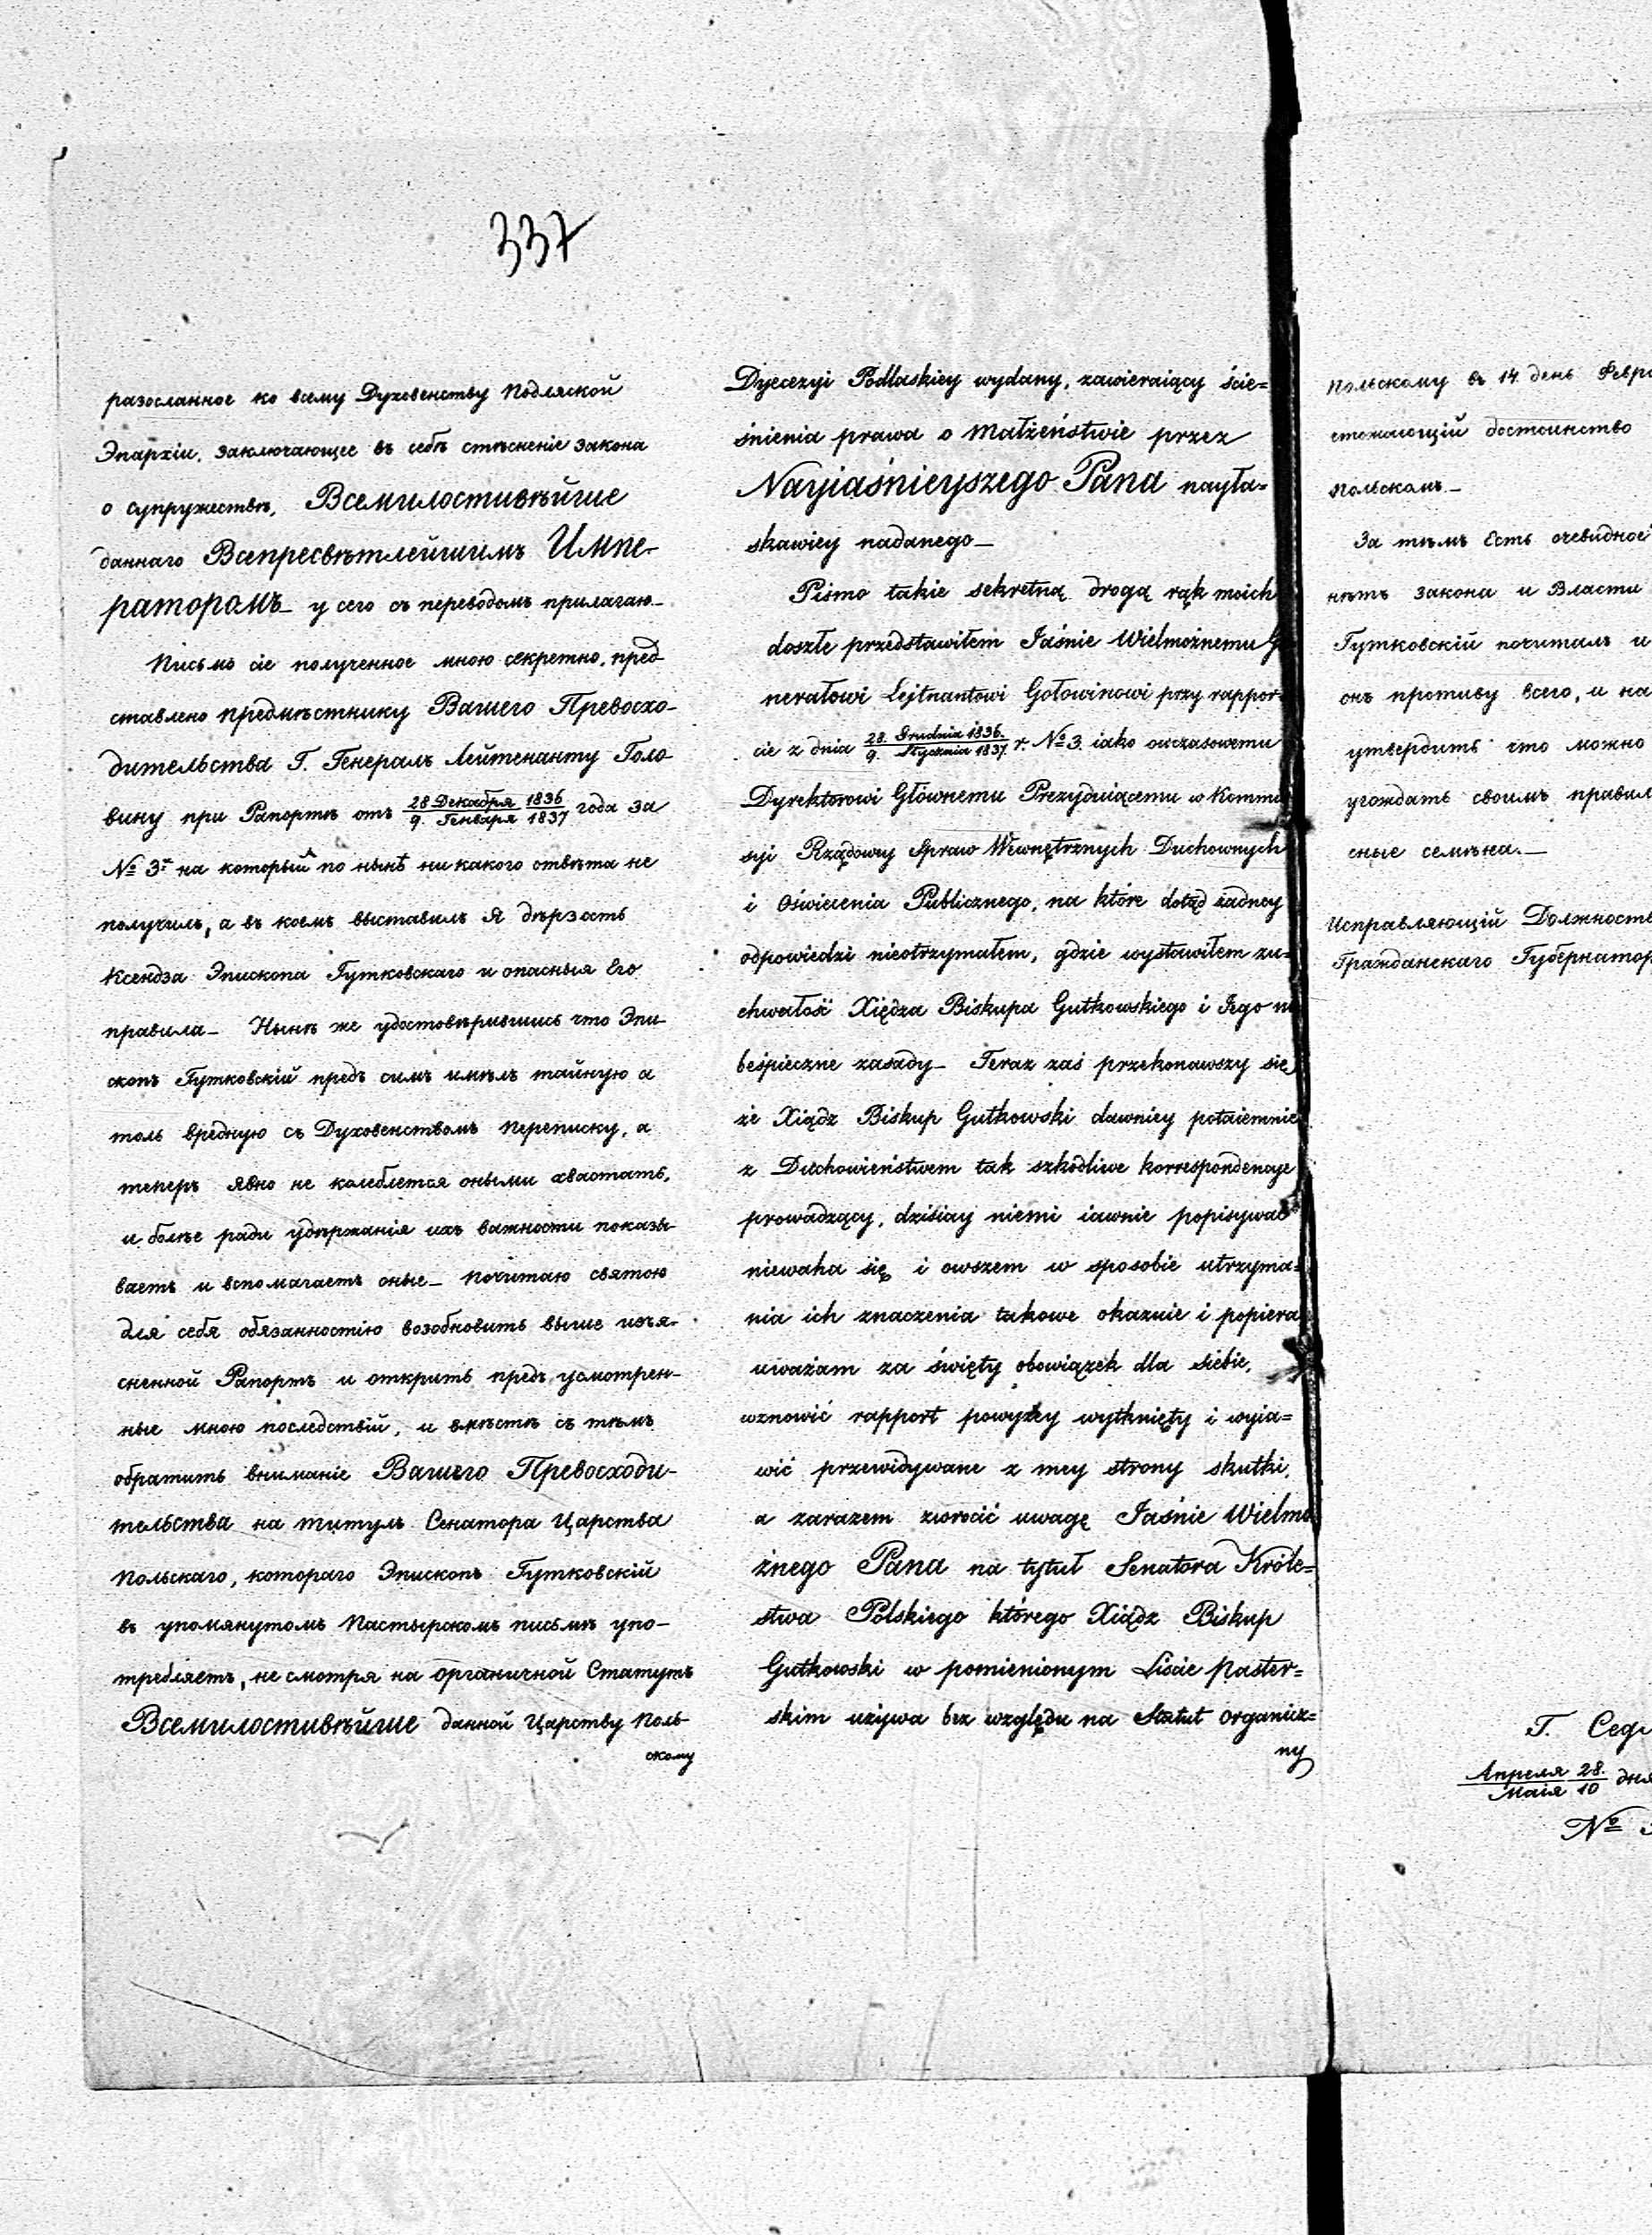 337
разосланное ко всему Духовенству Подляской
Эпархіи, заключающее въ себѣ стѣсненіе закона
о супружествѣ, Всемилостивѣйше
даннаго Всепресвѣтлейшимъ Импе-
раторомъ у сего съ переводомъ прилагаю.
Письмо сіе полученное мною секретно, пред
ставлено предмѣстнику Вашего Превосхо-
дительства Г. Генералъ Лейтенанту Голо
вину при Рапортѣ отъ 28 Декабря 1836 / 9. Генваря 1837 года за
№ 3. на который по нынѣ ни какого отвѣта не
получилъ, а въ коемъ выставилъ я дѣрзать
Ксендза Эпископа Гутковскаго и опасныя Его
правила – Нынѣ же удостовѣрившись что Эпи-
скопъ Гутковскій предъ симъ имѣлъ тайную а
толь вредную съ Духовенствомъ переписку, а
теперъ явно не колеблется оными хвастать,
и болѣе ради удѣржанія ихъ важности показы-
ваетъ и вспомагаетъ оные – почитаю святою
для себя обязанностію возобновить выше изъя-
сненной Рапортъ и открыть предъ усмотрен-
ные мною последствій, и вмѣстѣ съ тѣмъ
обратить вниманіе Вашего Превосходи-
тельства на титулъ Сенатора Царства
Польскаго, котораго Эпископъ Гутковскій
въ упомянутомъ Пастырскомъ письмѣ упо-
требляетъ, не смотря на органичной Статутъ
Всемилостивѣйше данной Царству Поль-
скому
Dyecezyi Podlaskiey wydany, zawieraiący ście=
śnienia prawa o Małżeństwie przez
Nayiaśnieyszego Pana nayła=
skawiey nadanego –
Pismo takie sekretną drogą rąk moich
doszłe przedstawiłem Jaśnie Wielmożnemu G
nerałowi Lejtnantowi Gołowinowi przy rappor-
cie z dnia 28. Grudnia 1836. / 9. Stycznia 1837. r. № 3. iako owczasowemu
Dyrektorowi Głównemu Prezyduiącemu w Kommi
syi Rządowey Spraw Wewnętrznych Duchownych
i Oświecenia Publicznego, na które dotąd żadney
odpowiedzi nieotrzymałem, gdzie wystawiłem zu=
chwałość Xiędza Biskupa Gutkowskiego i Jego nie
beśpieczne zasady – Teraz zaś przekonawszy się
że Xiądz Biskup Gutkowski dawniey potaiemnie
z Duchowieństwem tak szkodliwe korrespondencye
prowadzący, dzisiay niemi iawnie popisywać
niewaha się i owszem w sposobie utrzyma=
nia ich znaczenia takowe okazuie i popiera
uważam za święty obowiązek dla siebie,
wznowić rapport powyżey wytknięty i wyia=
wić przewidywane z mey strony skutki,
a zarazem zwrócić uwagę Jaśnie Wielmo
żnego Pana na tytuł Senatora Króle=
stwa Polskiego którego Xiądz Biskup
Gutkowski w pomienionym Liście Paster=
skim używa bez względu na Statut organicz=
ny
Польскому въ 14. день Февра
стежающій достоинство
Польскомъ –
За тѣмъ Есть очевидное
нѣтъ закона и Власти
Гутковскій почиталъ и
онъ противу всего, и на
утвердить что можно
угождать своимъ правил
сные семѣна. –
Исправляющій Должность
Гражданскаго Губернатор
Г. Седл
Апреля 28. / Маія 10 дня
№